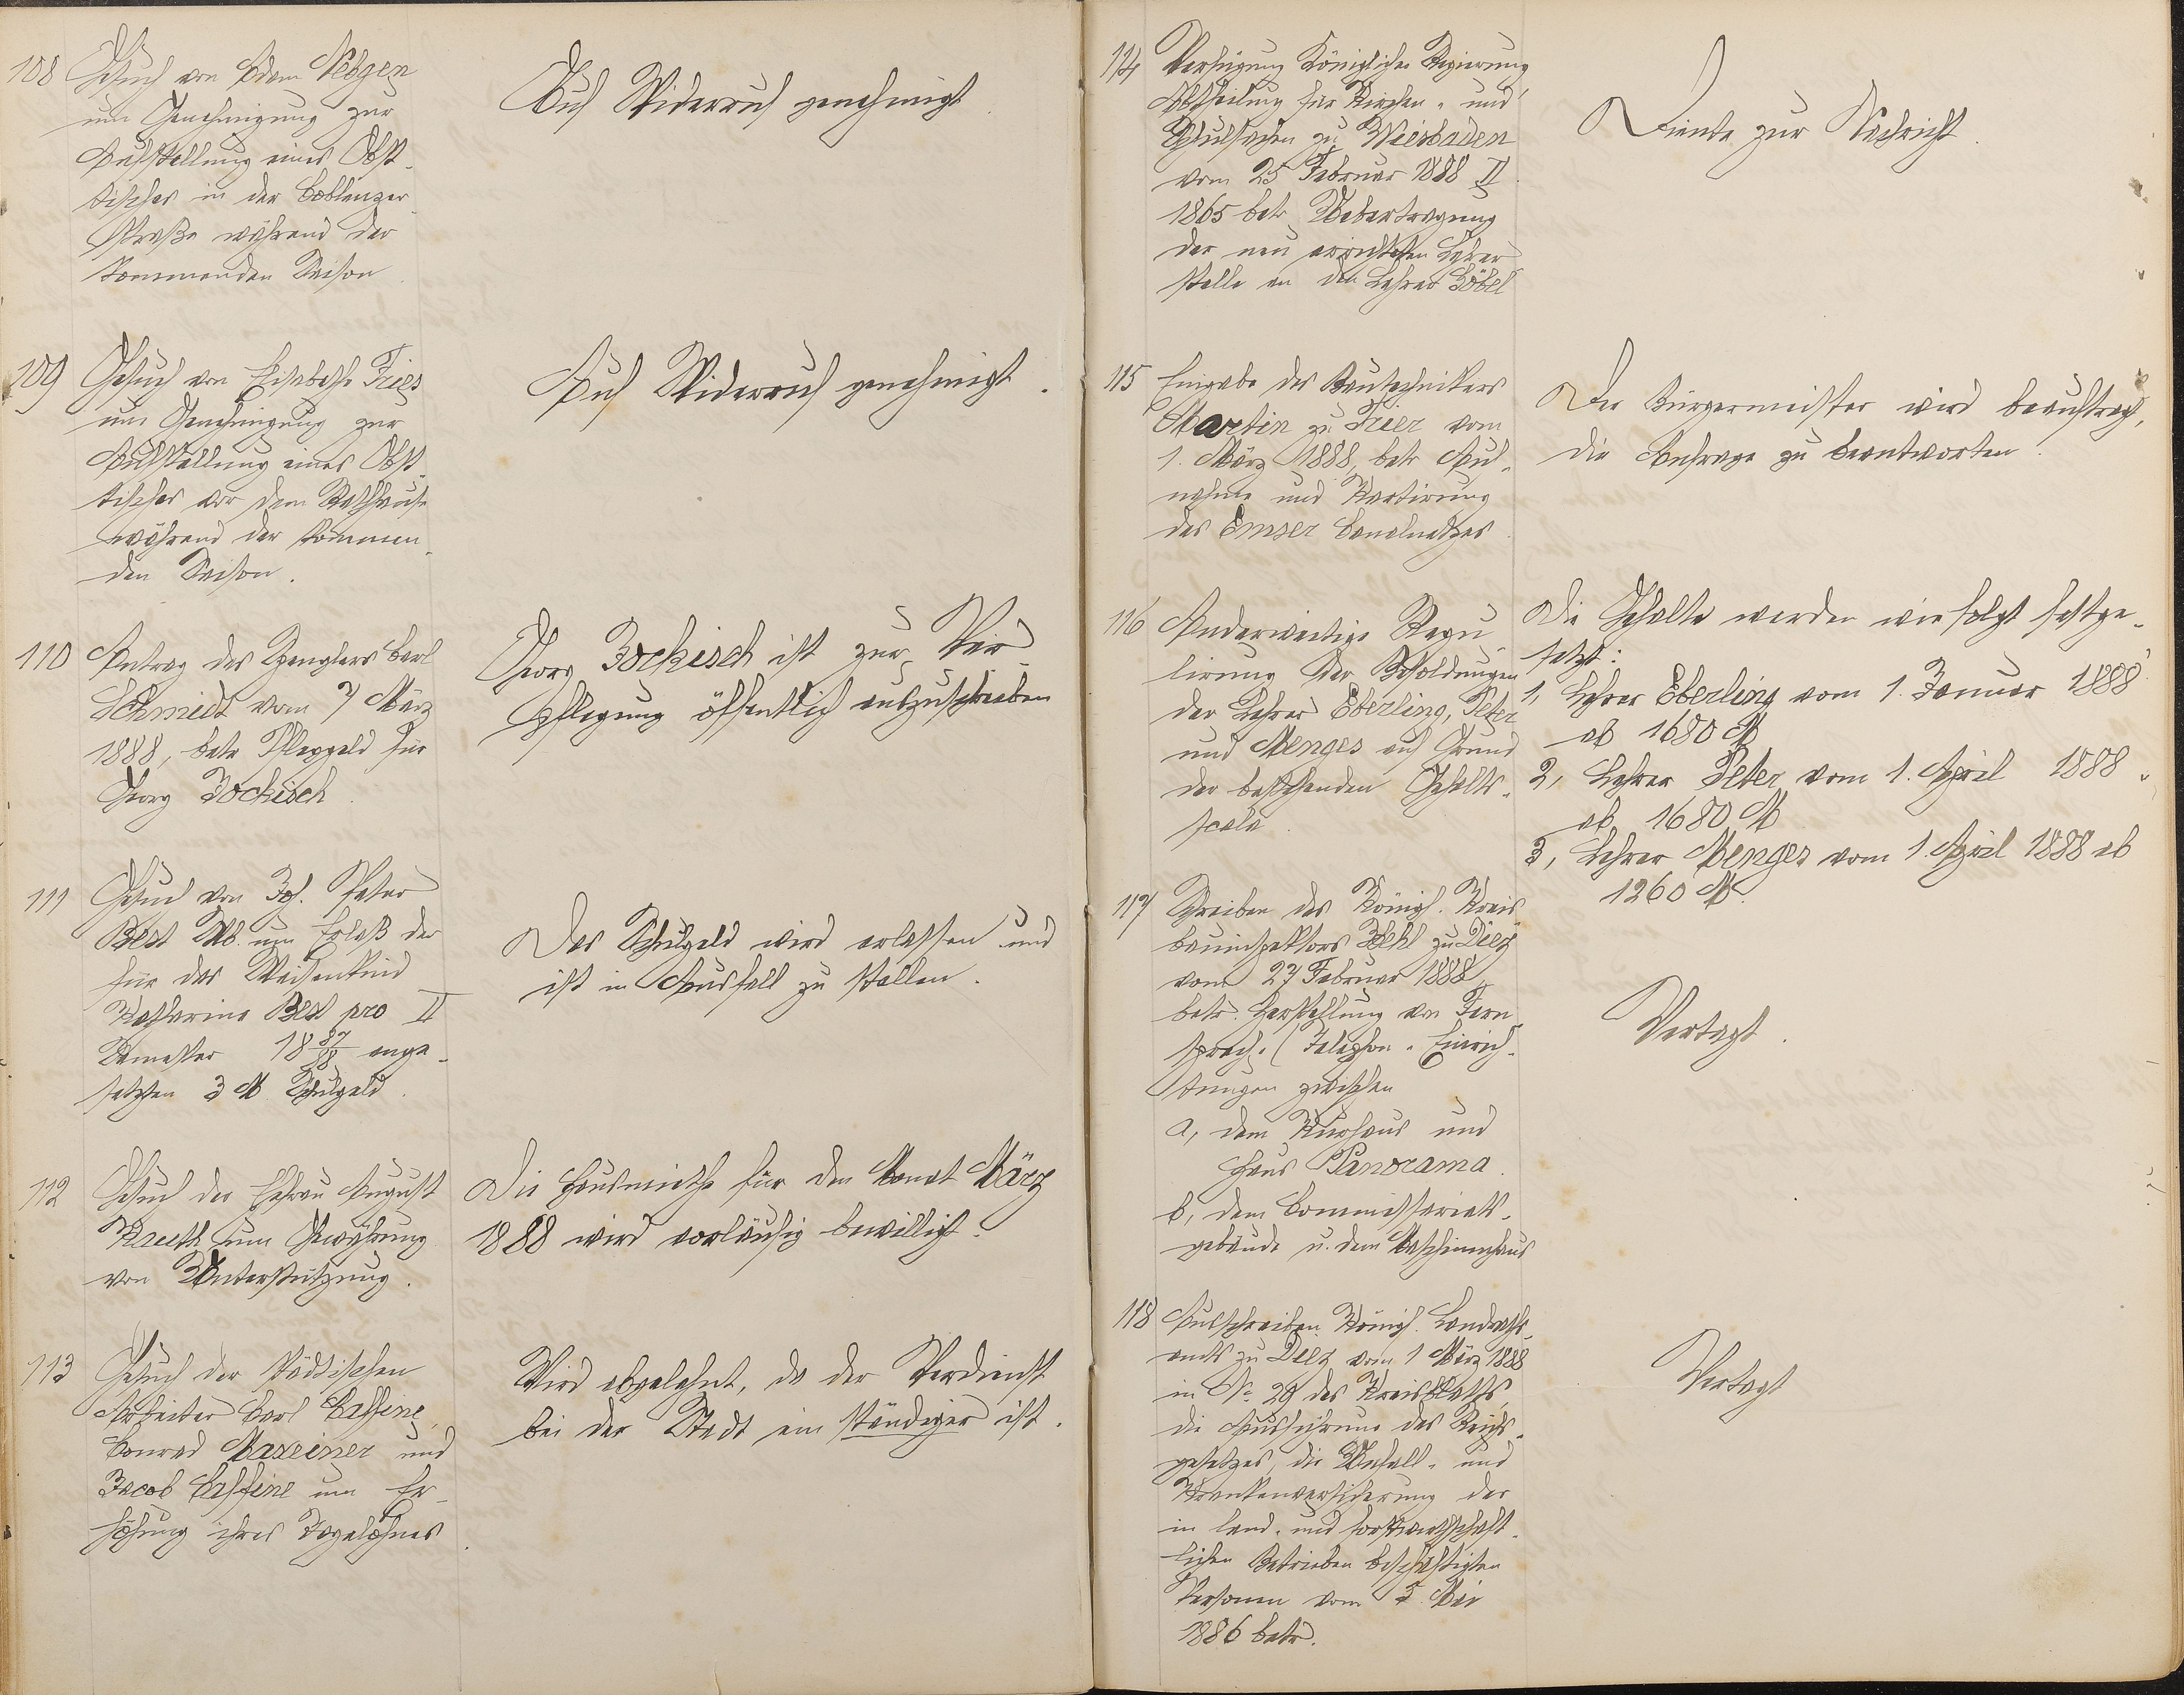 108 Gesuch von Adam Nebgen
um Genehmigung zur
Aufstellung eines Obst-
tisches in der Coblenzer
Straße während der
kommenden Saison
Auf Widerruf genehmigt.
109 Gesuch von Elisabethe Fries
um Genehmigung zur
Aufstellung eines Obst-
tisches vor dem Rathhause
während der kommen-
den Saison.
Auf Widerruf genehmigt.
110 Antrag des Spenglers Carl
Schmidt vom 7 März
1888, betr Pflegegeld für
Georg Zockisch.
Georg Zockisch ist zur Ver-
pflegung öffentlich auszuschreiben
111 Gesuch von Joh. Peter
Best Wb. um Erlaß der
für das Waisenkind
Katharine Best pro II
Semester 18 87/88 ange-
setzten 3 M. Schulgeld.
Das Schulgeld wird erlassen und
ist in Ausfall zu stellen.
112 Gesuch der Ehefrau August
um Gewährung
von Unterstützung.
Die Hausmiethe für den Monat März
1888 wird vorläufig bewilligt.
113 Gesuch der städtischen
Arbeiter Carl Caffine,
Conrad Maxeiner und
Jacob Caffine um Er-
höhung ihres Tagelohnes.
Wird abgelehnt, da der Verdienst
bei der Stadt ein ständiger ist.
114 Verfügung Königlicher Regierung
Abtheilung für Kirchen- und
Schulsachen zu Wiesbaden
vom 25 Februar 1888 II
1865 betr Uebertragung
der neu errichteten Lehrer
stelle an den Lehrer Göbel
Diente zur Nachricht.
115 Eingabe des Bautechnikers
Martin zu Trier vom
1. März 1888, betr Auf-
nahme und Kartirung
des Emser Canalnetzes.
Der Bürgermeister wird beauftragt,
die Anfrage zu beantworten.
116 Anderweitige Regu-
lirung der Besoldungen
der Lehrer Eberling, Peter
und Menges auf Grund
der bestehenden Gehalts-
scala.
Die Gehalte werden wie folgt festge-
setzt:
1, Lehrer Eberling vom 1. Januar 1888
ab 1680 M
2, Lehrer Peter vom 1. April 1888
ab 1680 M
3, Lehrer Menges vom 1. April 1888 ab
1260 M.
117 Schreiben des Königl. Kreis
bauinspektors zu Diez
vom 27 Februar 1888
betr. Herstellung von Fern-
sprech- (Telephon- Einrich-
tungen zwischen
a, dem Kurhaus und
Haus Panorama.
b, dem Commissariats-
gebäude u. dem Maschinenhaus
Vertagt.
118 Ausschreiben Königl. Landraths-
amts zu Diez vom 1 März 1888
in No. 29 des Kreisblatts,
die Ausführung des Reichs-
gesetzes, die Unfall- und
Krankenversicherung der
in land- und forstwirthschaft-
lichen Betrieben beschäftigten
Personen vom 5. Mai
1886 betr.
Vertagt